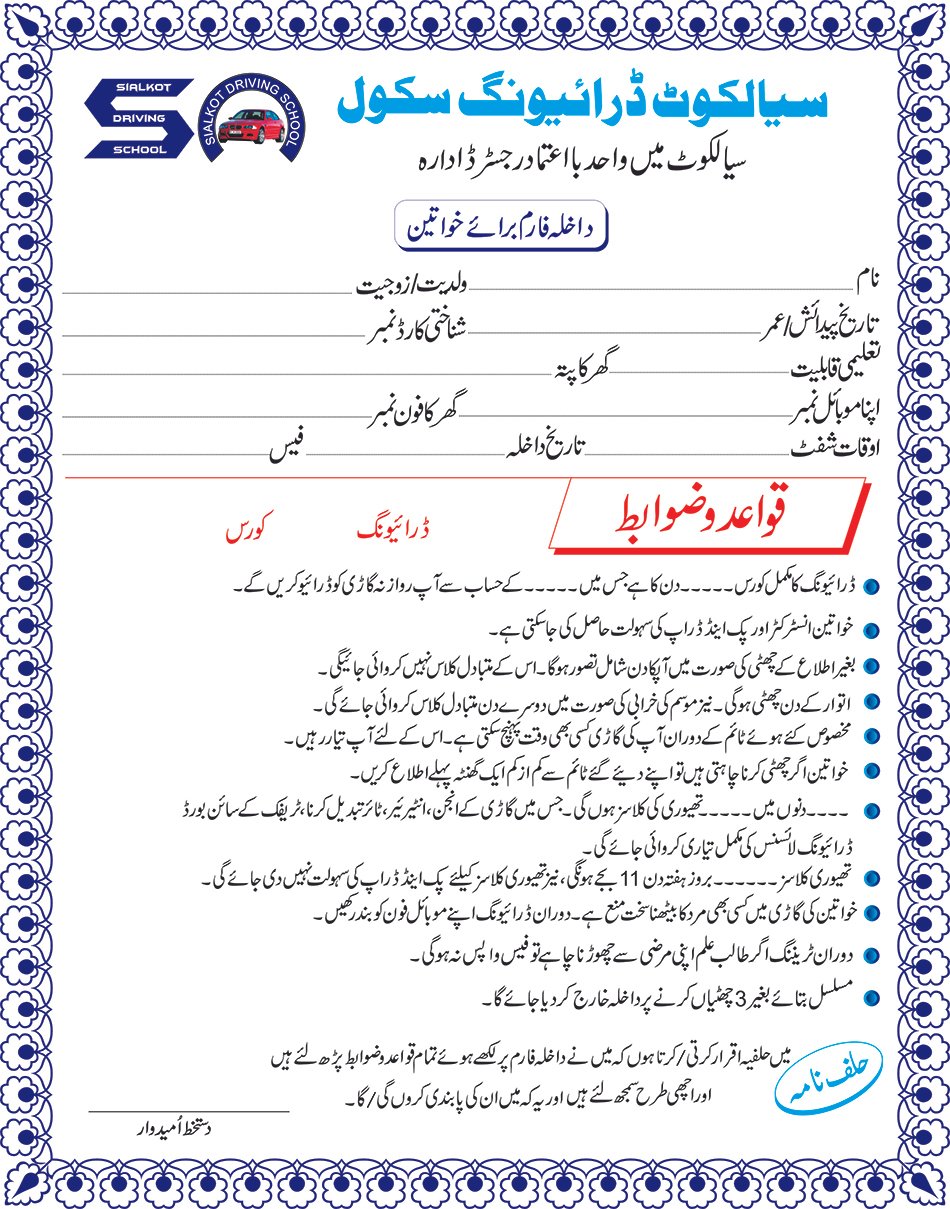 SIALKOT
DRIVING
SCHOOL
SIALKOT DRIVING SCHOOL
سیالکوٹ ڈرائیونگ سکول
سیالکوٹ میں واحد با اعتماد رجسٹرڈ ادارہ
داخلہ فارم برائے خواتین
نام ولدیت/زوجیت
تاریخ پیدائش/عمر شناختی کارڈ نمبر
تعلیمی قابلیت گھر کا پتہ
اپنا موبائل نمبر گھر کا فون نمبر
اوقات شفٹ تاریخ داخلہ فیس
قواعد و ضوابط
ڈرائیونگ کورس
ڈرائیونگ کا مکمل کورس ----- دن کا ہے جس میں ----- کے حساب سے آپ روزانہ گاڑی کو ڈرائیو کریں گے۔
خواتین انسٹرکٹر اور پک اینڈ ڈراپ کی سہولت حاصل کی جاسکتی ہے۔
بغیر اطلاع کے چھٹی کی صورت میں آپکا دن شامل تصور ہوگا۔ اس کے متبادل کلاس نہیں کروائی جائیگی۔
اتوار کے دن چھٹی ہوگی۔ نیز موسم کی خرابی کی صورت میں دوسرے دن متبادل کلاس کروائی جائے گی۔
مخصوص کئے ہوئے ٹائم کے دوران آپ کی گاڑی کسی بھی وقت پہنچ سکتی ہے۔ اس کے لئے آپ تیار رہیں۔
خواتین اگر چھٹی کرنا چاہتی ہیں تو اپنے دیئے گئے ٹائم سے کم از کم ایک گھنٹہ پہلے اطلاع کریں۔
---- دنوں میں ----- تھیوری کی کلاسز ہوں گی۔ جس میں گاڑی کے انجن، انٹیرئیر، ٹائر تبدیل کرنا، ٹریفک کے سائن بورڈ
ڈرائیونگ لائسنس کی مکمل تیاری کروائی جائے گی۔
تھیوری کلاسز ------ بروز ہفتہ دن 11 بجے ہونگی، نیز تھیوری کلاسز کیلئے پک اینڈ ڈراپ کی سہولت نہیں دی جائے گی۔
خواتین کی گاڑی میں کسی بھی مرد کا بیٹھنا سخت منع ہے۔ دوران ڈرائیونگ اپنے موبائل فون کو بند رکھیں۔
دوران ٹریننگ اگر طالب علم اپنی مرضی سے چھوڑنا چاہے تو فیس واپس نہ ہوگی۔
مسلسل بتائے بغیر 3 چھٹیاں کرنے پر داخلہ خارج کردیا جائے گا۔
حلف نامہ
میں حلفیہ اقرار کرتی/کرتا ہوں کہ میں نے داخلہ فارم پر لکھے ہوئے تمام قواعد و ضوابط پڑھ لئے ہیں
اور اچھی طرح سمجھ لئے ہیں اور یہ کہ میں ان کی پابندی کروں گی/گا۔
دستخط اُمیدوار